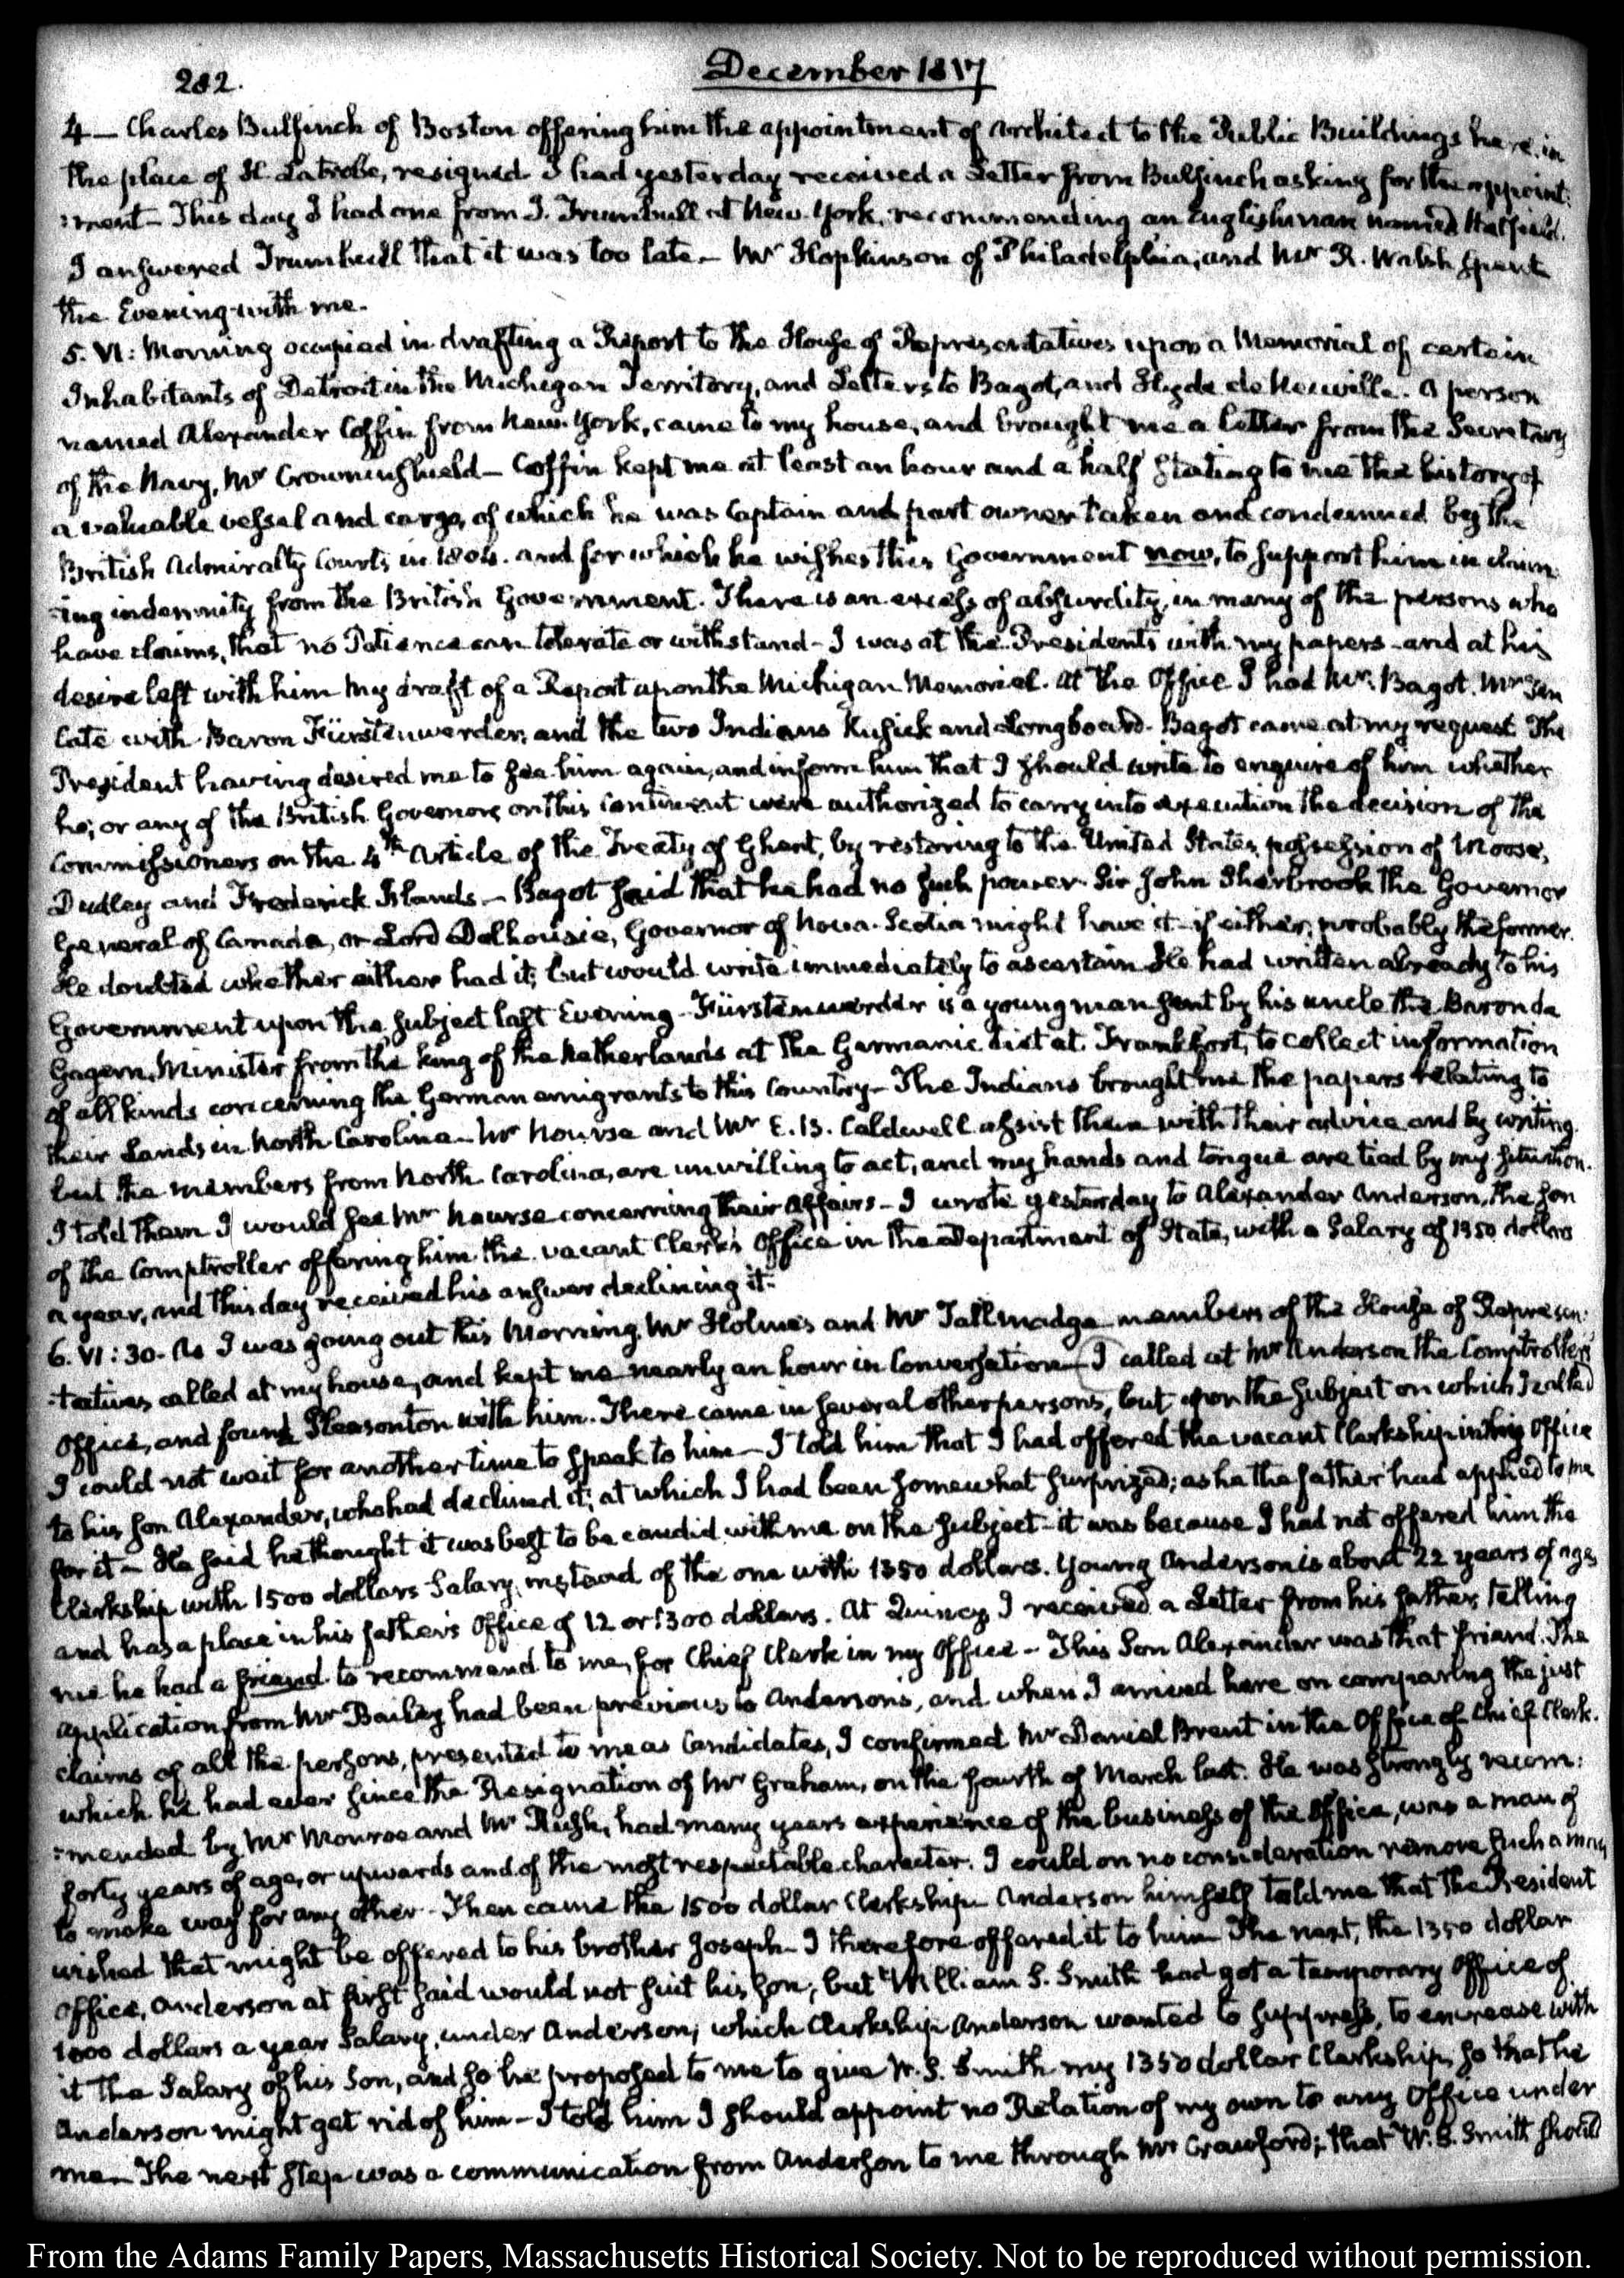 282.
December 1817
4 — Charles Bulfinch of Boston offering him the appointment of Architect to the Public Buildings here, in
the place of H. Latrobe, resigned. I had yesterday received a Letter from Bulfinch asking for the appoint:
:ment — This day I had one from J. Trumbull at New-York, recommending an Englishman named Hatfield.
I answered Trumbull that it was too late. — Mr Hopkinson of Philadelphia, and Mr R. Walsh spent
the Evening with me.
5. VI: Morning occupied in drafting a Report to the House of Representatives upon a Memorial of certain
Inhabitants of Detroit in the Michigan Territory, and Letters to Bagot, and Hyde de Neuville. A person
named Alexander Coffin from New-York, came to my house, and brought me a letter from the Secretary
of the Navy, Mr Crowninshield — Coffin kept me at least an hour and a half stating to me the history of
a valuable vessel and cargo, of which he was Captain and part owner taken and condemned by the
British Admiralty Courts in 1804. and for which he wishes this Government now, to support him in claim:
:ing indemnity from the British Government. There is an excess of absurdity, in many of the persons who
have claims, that no Patience can tolerate or withstand — I was at the Presidents with my papers — and at his
desire left with him my draft of a Report upon the Michigan Memorial. At the Office I had Mr Bagot. Mr Ten
Cate with Baron Fürstenwerder, and the two Indians Kusick and Longboard. Bagot came at my request. The
President having desired me to see him again, and inform him that I should write to enquire of him whether
he, or any of the British Governors on this Continent were authorized to carry into execution the decision of the
Commissioners on the 4th Article of the Treaty of Ghent, by restoring to the United States, possession of Moose,
Dudley and Frederick Islands — Bagot said that he had no such power. Sir John Sherbrook the Governor
General of Canada, or Lord Dalhousie, Governor of Nova-Scotia might have it — if either, probably the former.
He doubted whether either had it; but would write immediately to ascertain. He had written already to his
Government upon the subject last Evening — Fürstenwerder is a young man sent by his uncle the Baron de
Gagern, Minister from the king of the Netherlands at the Germanic diet at Frankfort, to collect information
of all kinds concerning the German emigrants to this Country — The Indians brought me the papers relating to
their Lands in North Carolina — Mr Nourse and Mr E. B. Caldwell assist them with their advice and by writing.
but the members from North Carolina, are unwilling to act, and my hands and tongue are tied by my situation.
I told them I would see Mr Nourse concerning their Affairs — I wrote yesterday to Alexander Anderson, the son
of the Comptroller offering him the vacant Clerk's Office in the Department of State, with a Salary of 1350 dollars
a year, and this day received his answer declining it.
6. VI: 30. As I was going out this Morning, Mr Holmes and Mr Tallmadge members of the House of Represen:
:tatives called at my house, and kept me nearly an hour in Conversation — I called at Mr Anderson the Comptroller's
Office, and found Pleasonton with him. There came in several other persons, but upon the subject on which I called
I could not wait for another time to speak to him — I told him that I had offered the vacant Clerkship in this Office
to his son Alexander, who had declined it; at which I had been somewhat surprized; as he the father had applied to me
for it — He said he thought it was best to be candid with me on the subject — it was because I had not offered him the
Clerkship with 1500 dollars Salary, instead of the one with 1350 dollars. Young Anderson is about 22 years of age,
and has a place in his father's Office of 12 or 1300 dollars. At Quincy I received a Letter from his father, telling
me he had a friend to recommend to me, for Chief Clerk in my Office — This Son Alexander was that friend. The
application from Mr Bailey had been previous to Anderson's, and when I arrived here on comparing the just
claims of all the persons, presented to me as Candidates, I confirmed Mr Daniel Brent in the Office of Chief Clerk.
which he had ever since the Resignation of Mr Graham, on the fourth of March last. He was strongly recom:
:mended by Mr Monroe and Mr Rush, had many years experience of the business of the Office, was a man of
forty years of age, or upwards and of the most respectable character. I could on no consideration remove such a man
to make way for any other — Then came the 1500 dollar Clerkship. Anderson himself told me that the President
wished that might be offered to his brother Joseph — I therefore offered it to him. The next, the 1350 dollar
Office, Anderson at first said would not suit his son; but William S. Smith had got a temporary Office of
1000 dollars a year Salary, under Anderson; which Clerkship Anderson wanted to suppress, to encrease with
it the Salary of his Son, and so he proposed to me to give W. S. Smith my 1350 dollar Clerkship, so that he
Anderson might get rid of him — I told him I should appoint no Relation of my own to any Office under
me — The next step was a communication from Anderson to me through Mr Crawford; that W. S. Smith should
From the Adams Family Papers, Massachusetts Historical Society. Not to be reproduced without permission.